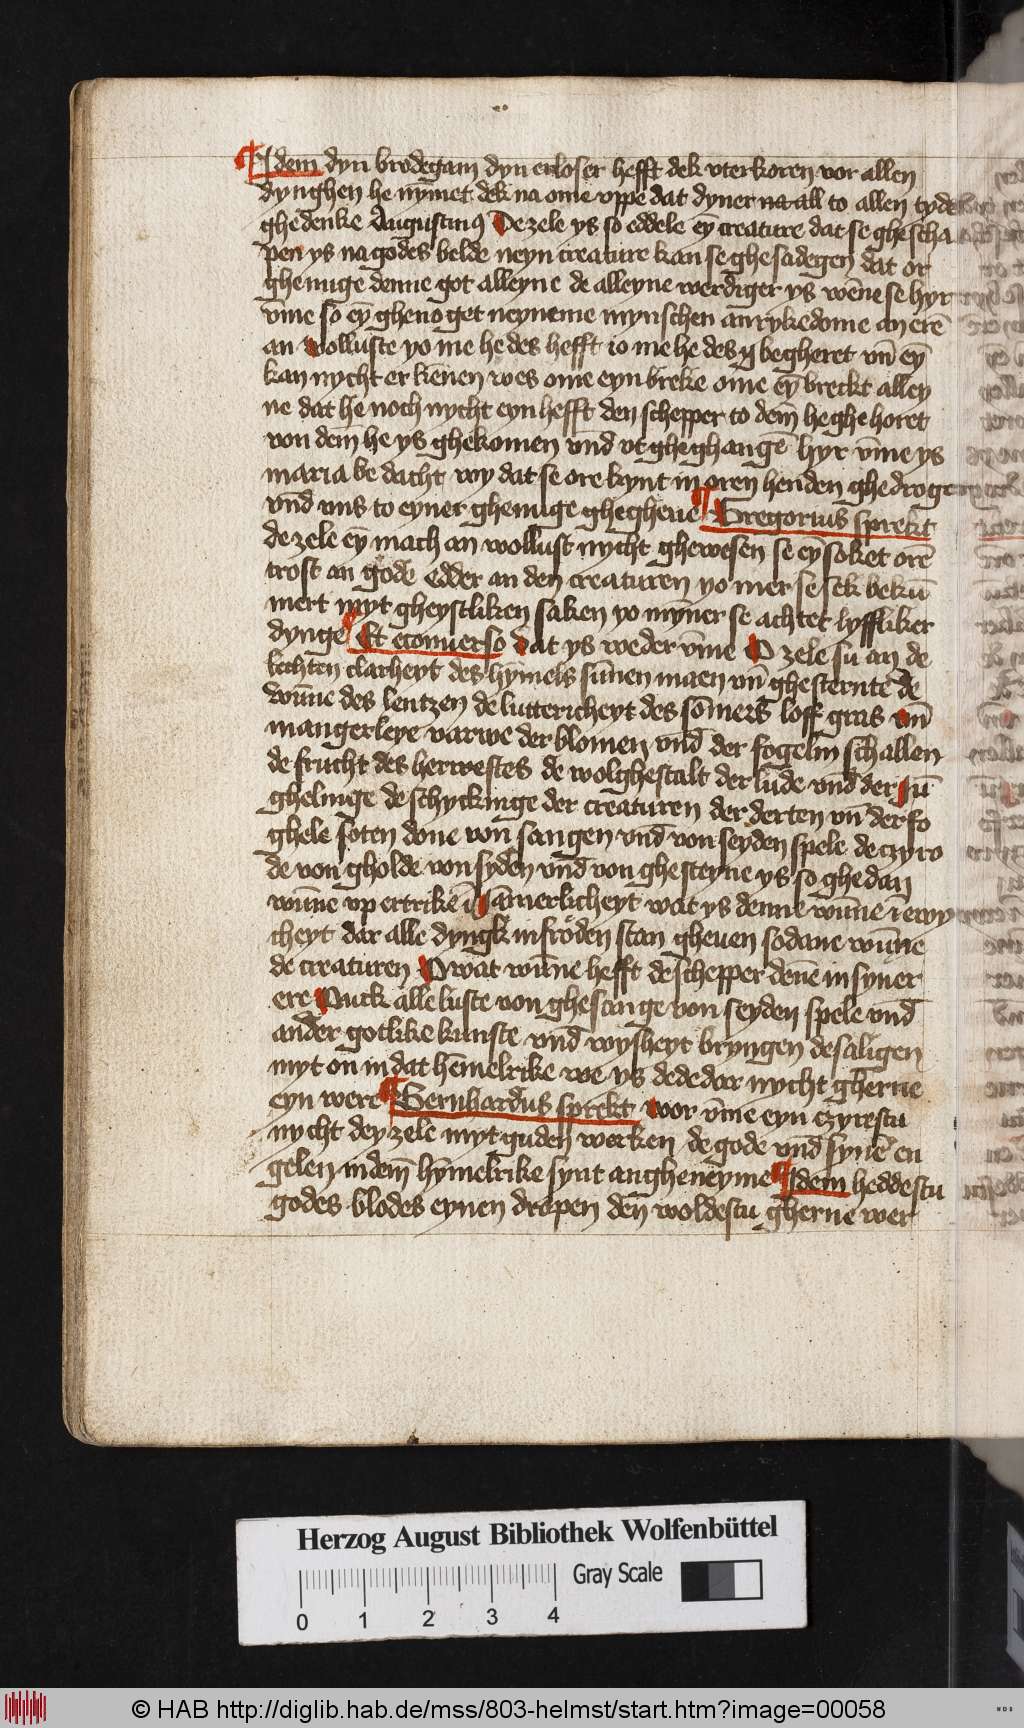 ¶ Idem dyn brodegam dyn erloser hefft dek vterkoren vor allen
dynghen he nymet dek na ome vppe dat dyner na all to allen tyde
ghedenke Augustinꝰ De zele ys so eddele ey̅ creature dat se ghescha
pen ys na godes belde neyn creature kan se ghesadegen dat or
ghenuge denne got alleyne de alleyne werdiger ys we̅ne se hyr
vme so ey̅ ghenoget neyneme mynschen an rykedome an ere̅
an wolluste yo me he des hefft io me he des begheret vn̅ ey̅
kan nycht erkenen wes ome eyn breke ome ey̅ breckt alley
ne dat he noch nycht eyn hefft den schepper to dem he ghehoret
von dem he ys ghekomen vnd vt gheghange̅ hyr v̅me ys
maria bedacht wy dat se ore kynt in oren henden ghedrog
vnd vns to eyner ghenuge ghegheue ¶ Gregorius sprekt
de zele ey̅ mach an wollust nycht ghewesen se ey̅ soket ore̅
trost an gode edder an den creaturen yo mer se sek beku̅
mert myt gheystliken saken yo myner se achtet lyffliker
dynge ¶ Et econuerso dat ys weder v̅me O zele su an de
lechten clarheyt des hymels su̅nen maen vn̅ ghesternte de
wu̅ne des lentzen de luttericheyt des so̅mers loff gras vn̅
mangerleye varwe der blomen vnd der fogelin schallen
de frucht des herwestes de wolghestalt der lude vnd der iu̅
ghelinge de schyckinge der creaturen der derten vn̅ der fo
ghele soten done von sangen vnd von seyden spele de czyro
de von gholde von syden vnd von ghesteyne ys so ghedan
wu̅ne vp ertrike i̅ ia̅merlicheyt wat ys denne wu̅ne i̅ ewy
cheyt dar alle dyngk in froden stan gheuen sodane wu̅ne
de creaturen O wat wu̅ne hefft de schepper dene̅ in syner
ere Ouck alle luste von ghesange von seyden spele vnd
ander gotlike kunste vnd wysheyt bryngen de saligen
myt on in dat he̅melrike we ys de de dar nycht gherne
eyn were ¶ Bernhardus sprekt wor v̅me eyn czyrestu
nycht dey zele myt guden werken de gode vnd syne̅ en
gelen in dem hy̅melrike synt angheneyme ¶ Idem heddestu
godes blodes eynen dropen den woldestu gherne wer
Herzog August Bibliothek Wolfenbüttel
Gray Scale
0 1 2 3 4
© HAB http://diglib.hab.de/mss/803-helmst/start.htm?image=00058